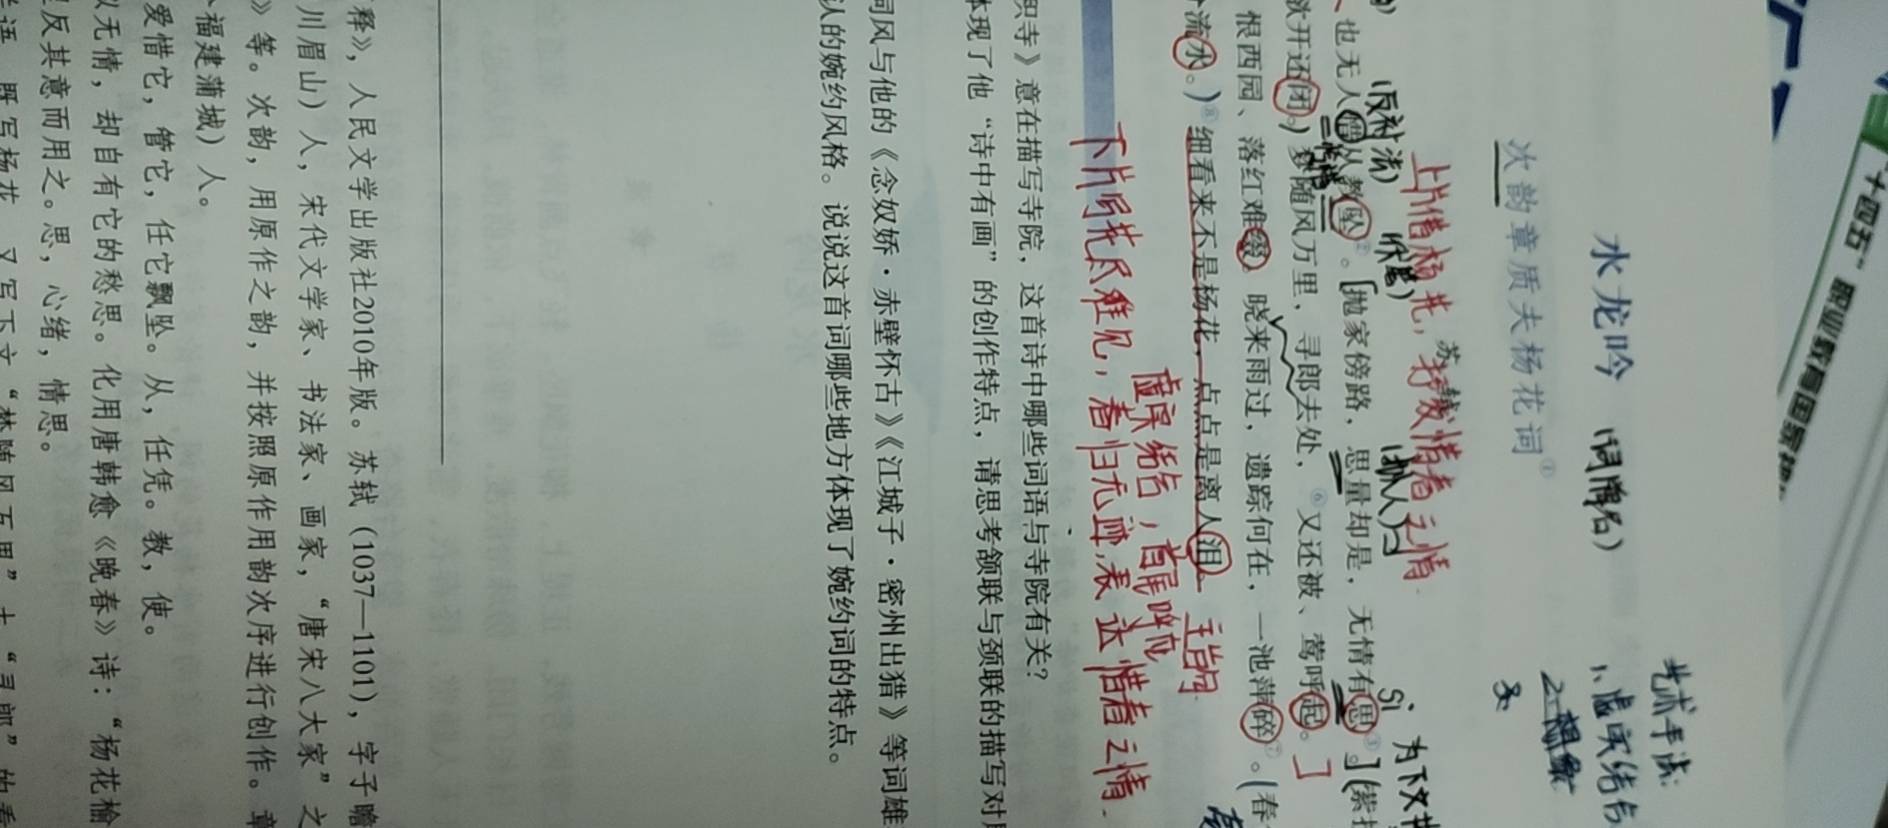 "十四五"职业教育国家规
艺术手法:
1、虚实结合
2、
3、
水龙吟 (词牌名)
次韵章质夫杨花词①
苏轼
上片惜杨花, 抒发惜春之情
(反衬法) (拟人) sì 为下文
也无人惜从教坠②。[抛家傍路, 思量却是, 无情有思③。](萦
欲开还闭。)梦随风万里, 寻郎去处, ⑥又还被、莺呼起。]
恨西园、落红难缀。晓来雨过, 遗踪何在, 一池萍碎⑦。(春
流水。)⑧细看来不是杨花, 点点是离人泪。
虚实结合, 首尾呼应
下片所花尽难见, 春归无迹, 表达惜春之情.
积寺》意在描写寺院, 这首诗中哪些词语与寺院有关?
体现了他"诗中有画"的创作特点, 请思考颔联与颈联的描写对
词风与他的《念奴娇·赤壁怀古》《江城子·密州出猎》等词雄
认的婉约风格。说说这首词哪些地方体现了婉约词的特点。
释》, 人民文学出版社2010年版。苏轼(1037—1101), 字子瞻
川眉山)人, 宋代文学家、书法家、画家, "唐宋八大家"之
》等。次韵, 用原作之韵, 并按照原作用韵次序进行创作。章
福建蒲城)人。
爱惜它, 管它, 任它飘坠。从, 任凭。教, 使。
以无情, 却自有它的愁思。化用唐韩愈《晚春》诗: "杨花榆
反其意而用之。思, 心绪, 情思。
语 既写杨花 又写下文"梦随风万里" "寻郎"的